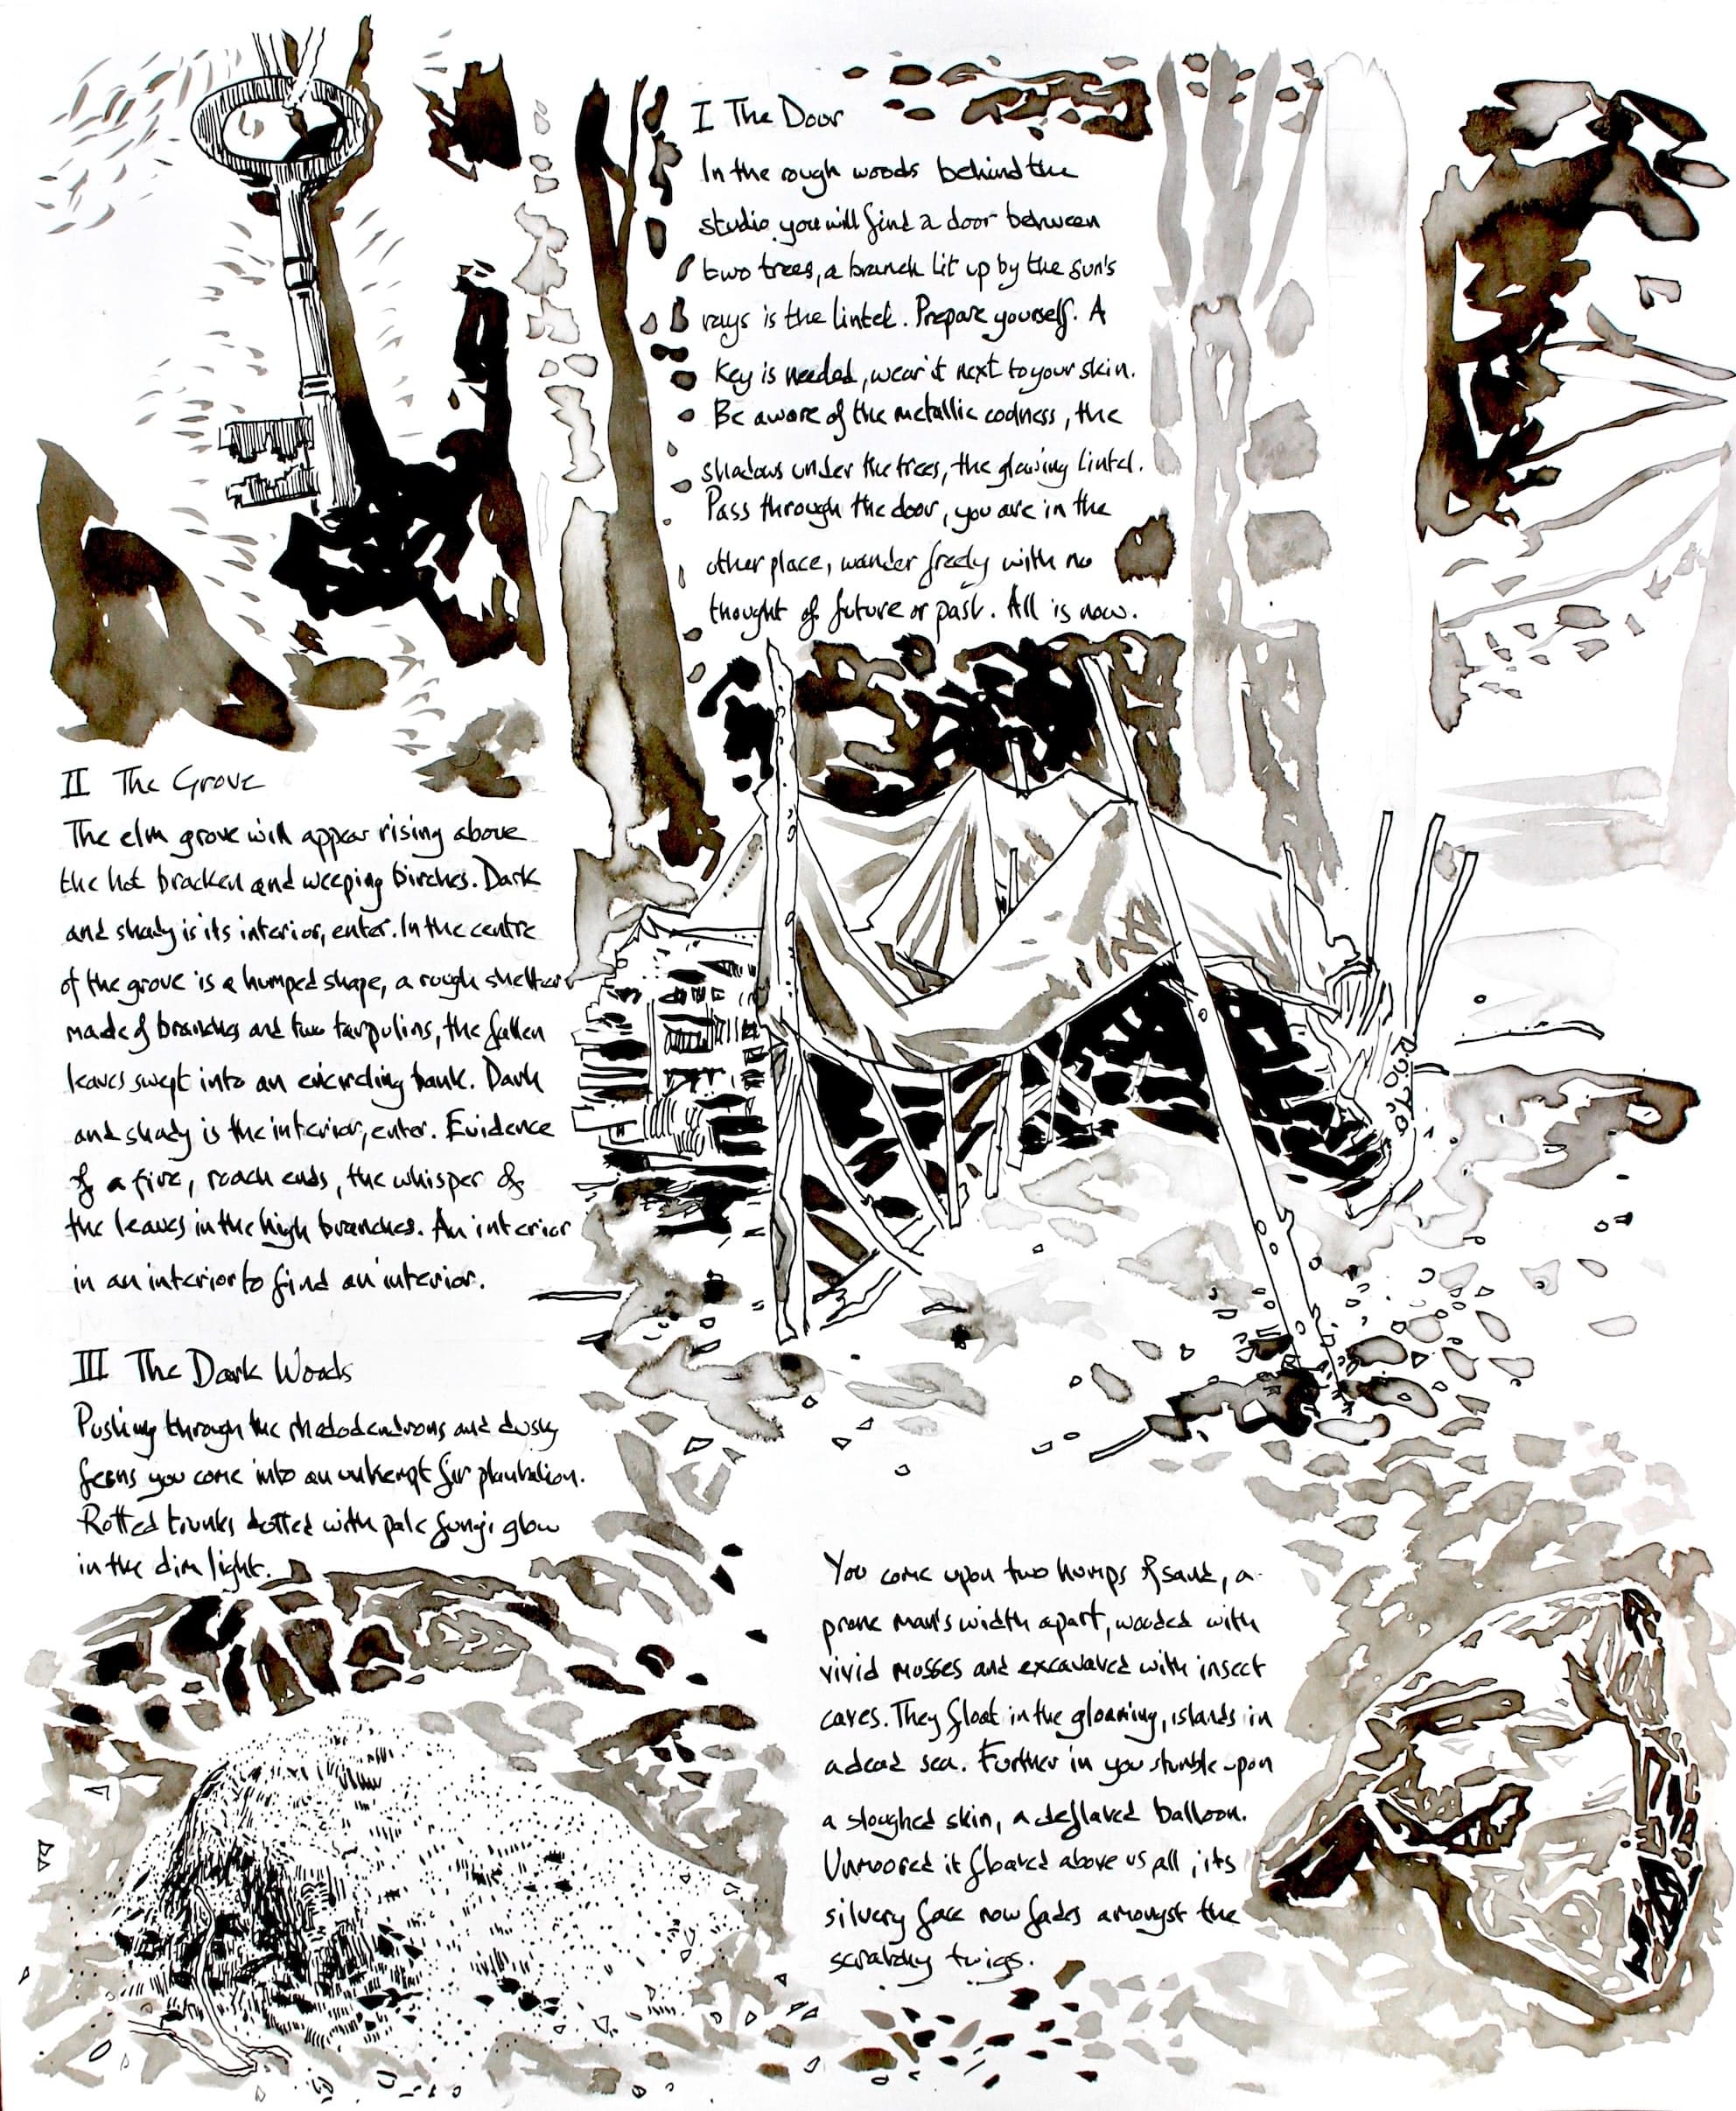 I The Door
In the rough woods behind the
studio you will find a door between
two trees, a branch lit up by the sun's
rays is the lintel. Prepare yourself. A
Key is needed, wear it next to your skin.
Be aware of the metallic coolness, the
shadows under the trees, the glowing lintel.
Pass through the door, you are in the
other place, wander freely with no
thought of future or past. All is now.
II The Grove
The elm grove will appear rising above
the hot bracken and weeping birches. Dark
and shady is its interior, enter. In the centre
of the grove is a humped shape, a rough shelter
made of branches and two tarpulins, the fallen
leaves swept into an encircling bank. Dark
and shady is the interior, enter. Evidence
of a fire, roach ends, the whisper of
the leaves in the high branches. An interior
in an interior to find an interior.
III The Dark Woods
Pushing through the rhododendrons and dusky
ferns you come into an unkempt fir plantation.
Rotted trunks dotted with pale fungi glow
in the dim light.
You come upon two humps of sand, a
prone man's width apart, wooded with
vivid mosses and excavated with insect
caves. They float in the gloaming, islands in
a dead sea. Further in you stumble upon
a sloughed skin, a deflated balloon.
Unmoored it floated above us all, its
silvery face now fades amongst the
scratchy twigs.